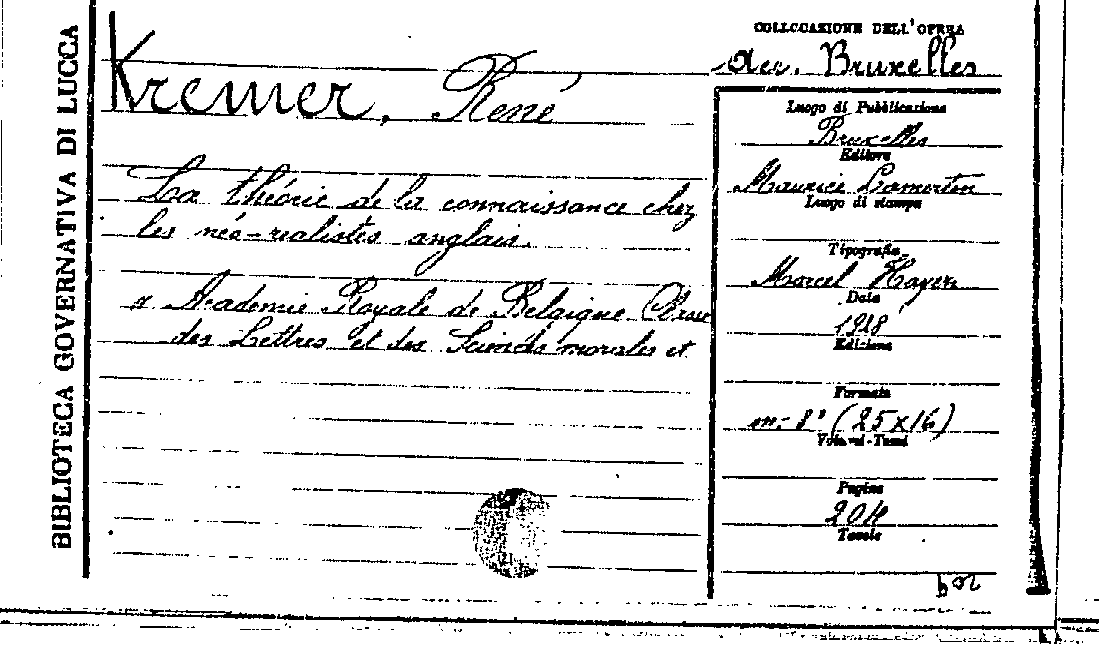 BIBLIOTECA GOVERNATIVA DI LUCCA
Kremer, René
La théorie de la connaissance chez
les néo-realistes anglais.
Academie Royale de Belgique
des Lettres et des Sciences morales et
COLLOCAZIONE DELL'OPERA
Acc. Bruxelles
Luogo di Pubblicazione
Bruxelles
Editore
Maurice Lamertin
Luogo di stampa
Tipografia
Marcel Hayez
Data
1928
Edizione
Formato
in-8° (25x16)
Volumi-Tomi
Pagine
204
Tavole